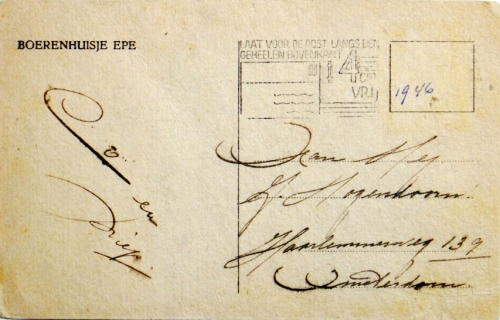 BOERENHUISJE EPE
LAAT VOOR DE POST LANGS DEN
GEHEELEN BOVENKANT
4 cm
VRIJ
1946
Aan Mej
J. Hogendoorn.
Haarlemmerweg 139
Amsterdam.
Co en
Diep.